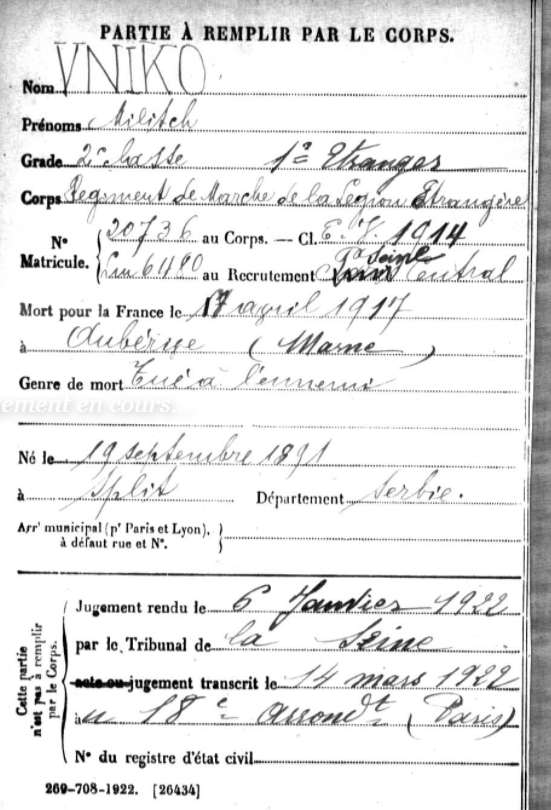 PARTIE À REMPLIR PAR LE CORPS.
Nom VNIKO
Prénoms Militch
Grade 2e classe 1er Etranger
Corps Regiment de Marche de la Légion Etrangère
N° Matricule. { 20736 au Corps. — Cl. E. V. 1914
Lm 6480 au Recrutement Seine Central
Mort pour la France le 17 avril 1917
à Aubérive (Marne)
Genre de mort Tué à l'ennemi
ement en cours.
Né le 19 septembre 1891
à Split Département Serbie.
Arrt municipal (pr Paris et Lyon),
à défaut rue et N°.
Cette partie n'est pas à remplir par le Corps.
Jugement rendu le 6 Janvier 1922
par le Tribunal de la Seine
acte ou jugement transcrit le 14 mars 1922
au 18e arrondt (Paris)
N° du registre d'état civil
269-708-1922. [26434]